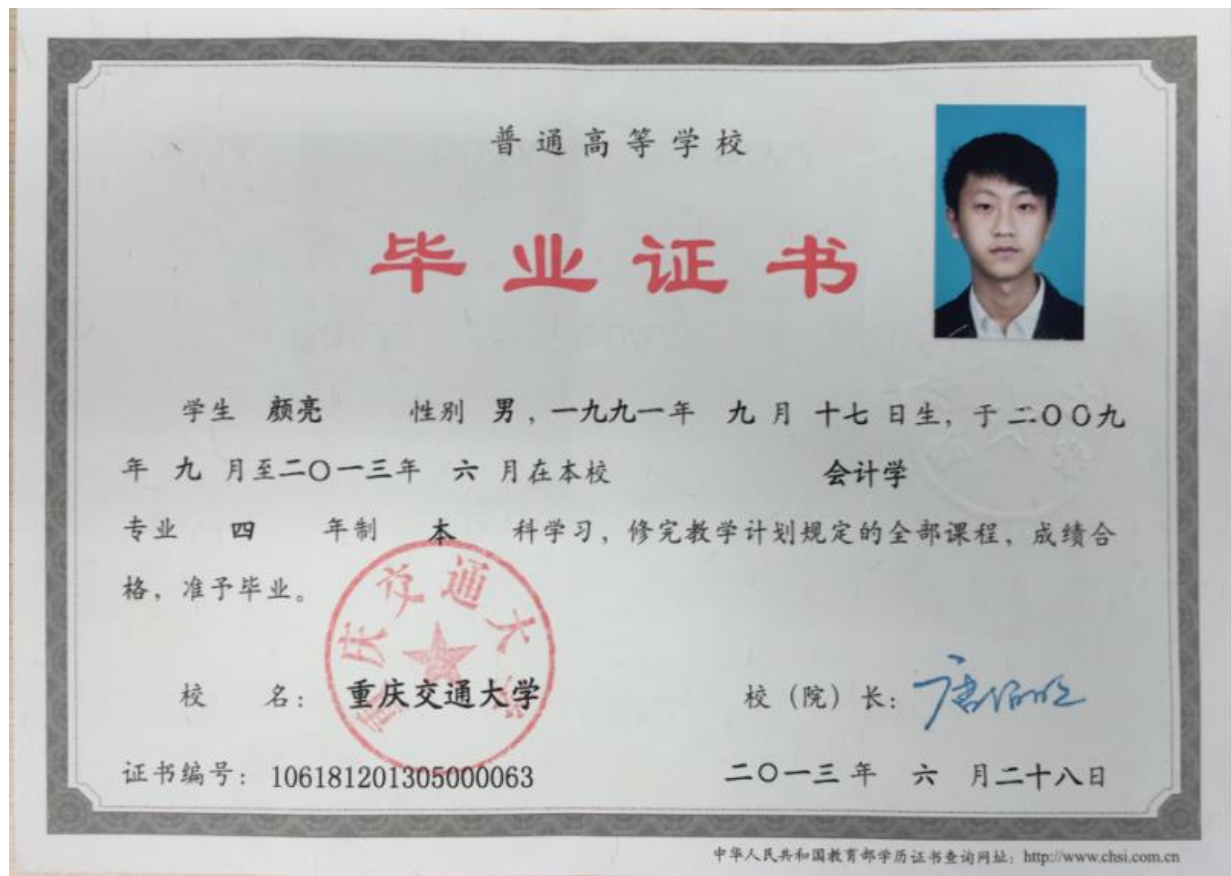 普通高等学校
毕业证书
学生 颜亮 性别 男，一九九一年 九 月 十七 日生，于二〇〇九
年 九 月至二〇一三年 六 月在本校 会计学
专业 四 年制 本 科学习，修完教学计划规定的全部课程，成绩合
格，准予毕业。
重庆交通大学
校 名： 重庆交通大学 校（院）长：唐伯明
证书编号： 106181201305000063 二〇一三年 六 月二十八日
中华人民共和国教育部学历证书查询网址：http://www.chsi.com.cn